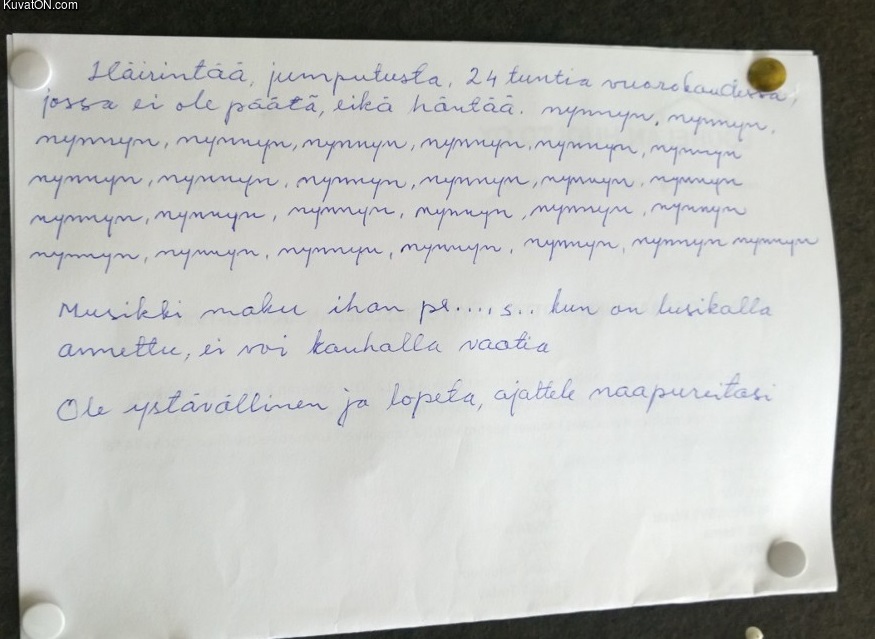 KuvatON.com
Häirintää, jumputusta, 24 tuntia vuorokaudessa,
jossa ei ole päätä, eikä häntää. nynnyn, nynnyn,
nynnyn, nynnyn, nynnyn, nynnyn, nynnyn, nynnyn
nynnyn, nynnyn, nynnyn, nynnyn, nynnyn, nynnyn
nynnyn, nynnyn, nynnyn, nynnyn, nynnyn, nynnyn
nynnyn, nynnyn, nynnyn, nynnyn, nynnyn, nynnyn nynnyn
Musikki maku ihan pe....s.. kun on lusikalla
annettu, ei voi kauhalla vaatia
Ole ystävällinen ja lopeta, ajattele naapureitasi